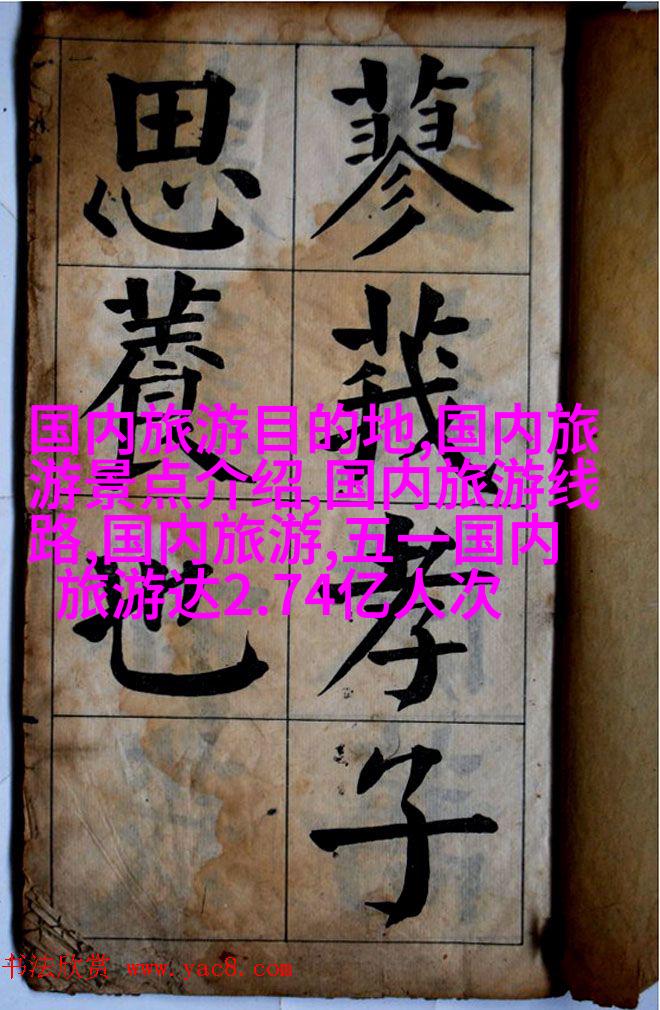 蓼莪孝子
思養也
国内旅游目的地,国内旅
游景点介绍,国内旅游线
路,国内旅游,五一国内
旅游达2.74亿人次
书法欣赏 www.yac8.com